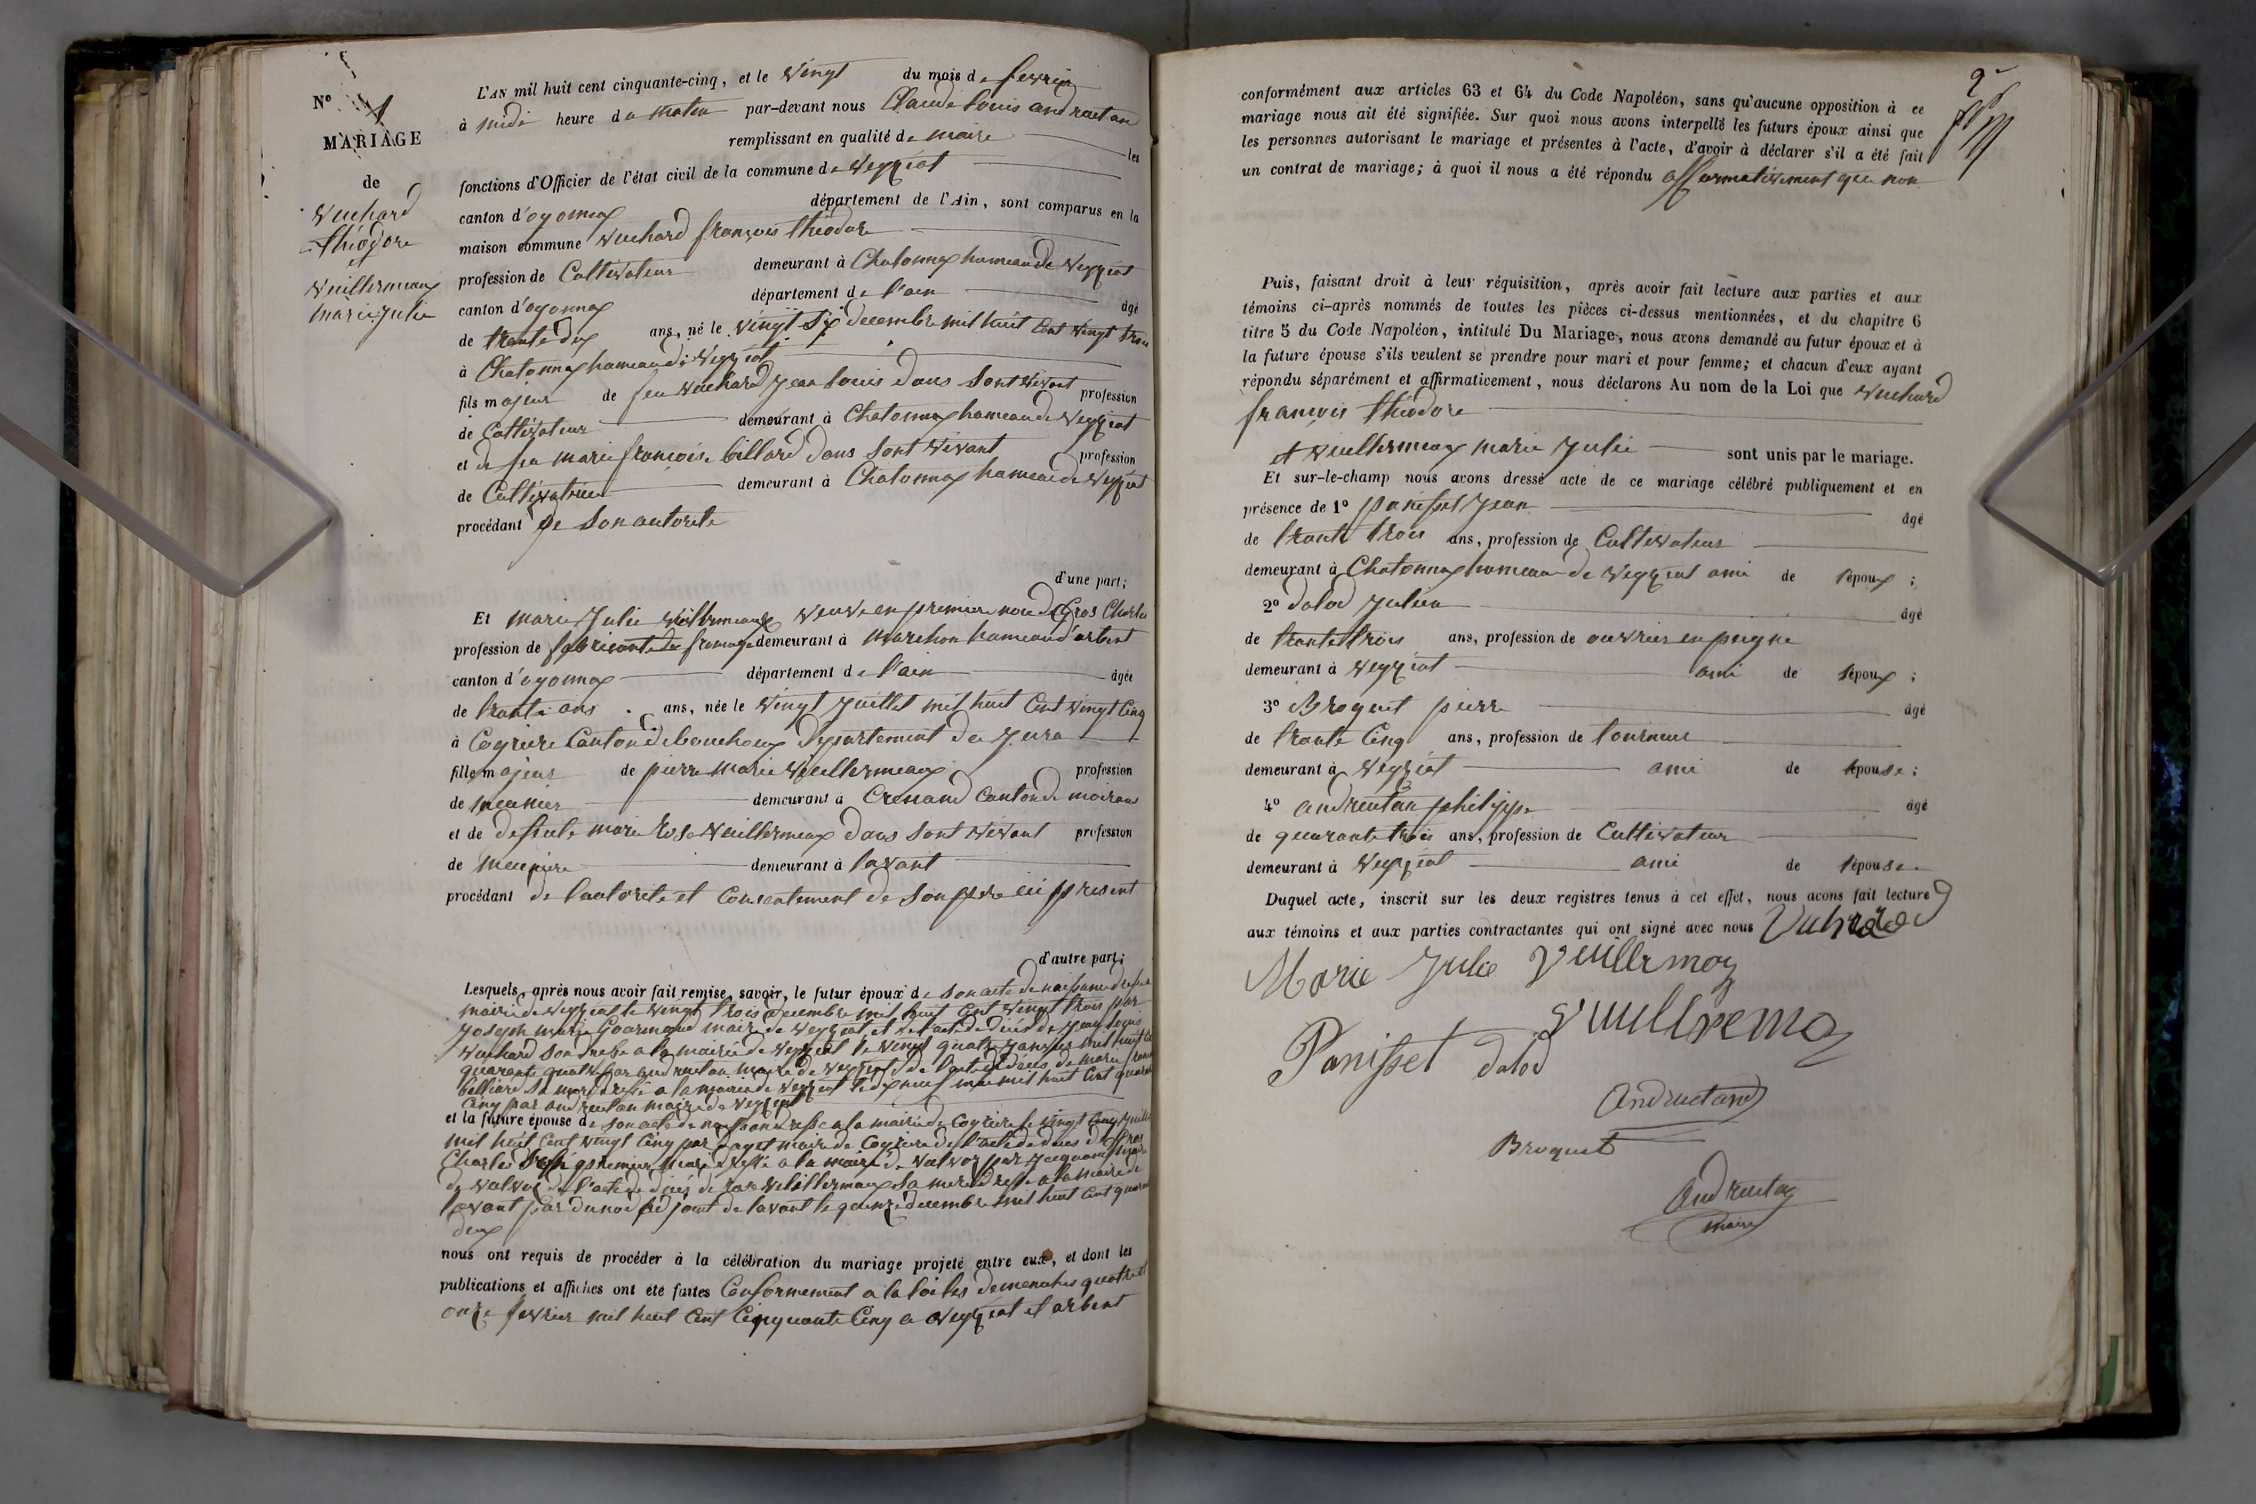 N° 1
MARIAGE
de
Vuchard
théodore
et
Vuillermeaux
marie Julie
L'AN mil huit cent cinquante-cinq, et le vingt du mois de fevrier
à midi heure du matin par-devant nous Claude Louis andruetan
remplissant en qualité de maire les
fonctions d'Officier de l'état civil de la commune de veyziat
canton d'oyonnax département de l'Ain, sont comparus en la
maison commune vuchard françois théodore
profession de Cultivateur demeurant à Chatonnax hameau de veyziat
canton d'oyonnax département de l'ain âgé
de trante ans, né le vingt six decembre mil huit Cent vingt trois
à Chatonnax hameau de veyziat
fils majeur de feu vuchard jean louis dans Sont vivant profession
de Cultivateur demeurant à Chatonnax hameau de veyziat
et de feu marie françoise billard dans Sont vivant profession
de Cultivatrice demeurant à Chatonnax hameau de veyziat
procédant de Son autorite
d'une part;
Et marie Julie vuillermeaux veuve en premiere noce de Gros Charles
profession de fabricante de fromage demeurant à marchon hameau d'arbent
canton d'oyonnax département de l'ain âgée
de trante ans ans, née le vingt Juillet mil huit Cent vingt Cinq
à Coyriere Canton de bouchoux département du Jura
fille majeur de pierre marie vuillermeaux profession
de meunier demeurant à Crenand Canton de moirans
et de defunte marie Rose vuillermeaux dans Sont vivant profession
de meuniere demeurant à lavant
procédant de l'autorite et Consentement de Son père ici present
d'autre part;
Lesquels après nous avoir fait remise, savoir, le futur époux de Son acte de naissance dressé
mairie de veyziat le vingt trois decembre mil huit Cent vingt trois par
Joseph marie Gourmand maire de veyziat et de l'acte de décés de Jean louis
vuchard Son dressé a la mairie de veyziat le vingt quatre Janvier mil huit
quarante quatre par andruetan maire de veyziat de l'acte de décés de marie
billiard Sa mere dressé a la mairie de veyziat le dix neuf mai mil huit Cent quarante
Cinq par andruetan maire de veyziat
et la future épouse de Son acte de naissance dressé a la mairie de Coyriere le vingt Cinq Juillet
mil huit Cent vingt Cinq par maire de Coyriere de l'acte de décés de Gros
Charles premier mari dressé a la mairie de par maire
de l'acte de décés de Rose vuillermeaux Sa mere dressé a la mairie de
lavant par adjoint de lavant le quinze decembre mil huit Cent quarante
deux
nous ont requis de procéder à la célébration du mariage projeté entre eux, et dont les
publications et affiches ont été faites Conformement a la loi les demenches quatre et
onze fevrier mil huit Cent Cinquante Cinq a veyziat et arbent
2
conformément aux articles 63 et 64 du Code Napoléon, sans qu'aucune opposition à ce
mariage nous ait été signifiée. Sur quoi nous avons interpellé les futurs époux ainsi que
les personnes autorisant le mariage et présentes à l'acte, d'avoir à déclarer s'il a été fait
un contrat de mariage; à quoi il nous a été répondu affirmativement que non
Puis, faisant droit à leur réquisition, après avoir fait lecture aux parties et aux
témoins ci-après nommés de toutes les pièces ci-dessus mentionnées, et du chapitre 6
titre 5 du Code Napoléon, intitulé Du Mariage, nous avons demandé au futur époux et à
la future épouse s'ils veulent se prendre pour mari et pour femme; et chacun d'eux ayant
répondu séparément et affirmativement, nous déclarons Au nom de la Loi que vuchard
françois théodore
et vuillermeaux marie Julie sont unis par le mariage.
Et sur-le-champ nous avons dressé acte de ce mariage célébré publiquement et en
présence de 1° panisset Jean âgé
de trante trois ans, profession de Cultivateur
demeurant à Chatonnax hameau de veyziat ami de l'époux;
2° dalod Julien âgé
de trante trois ans, profession de ouvrier en peigne
demeurant à veyziat ami de l'époux;
3° Broquet pierre âgé
de trante Cinq ans, profession de tourneur
demeurant à veyziat ami de l'épouse;
4° andruetan philippe âgé
de quarante trois ans, profession de Cultivateur
demeurant à veyziat ami de l'épouse.
Duquel acte, inscrit sur les deux registres tenus à cet effet, nous avons fait lecture
aux témoins et aux parties contractantes qui ont signé avec nous
Marie Julie Vuillermoz
Vuillremoz
Panisset dalod
andruetan
Broquet
andruetan
maire